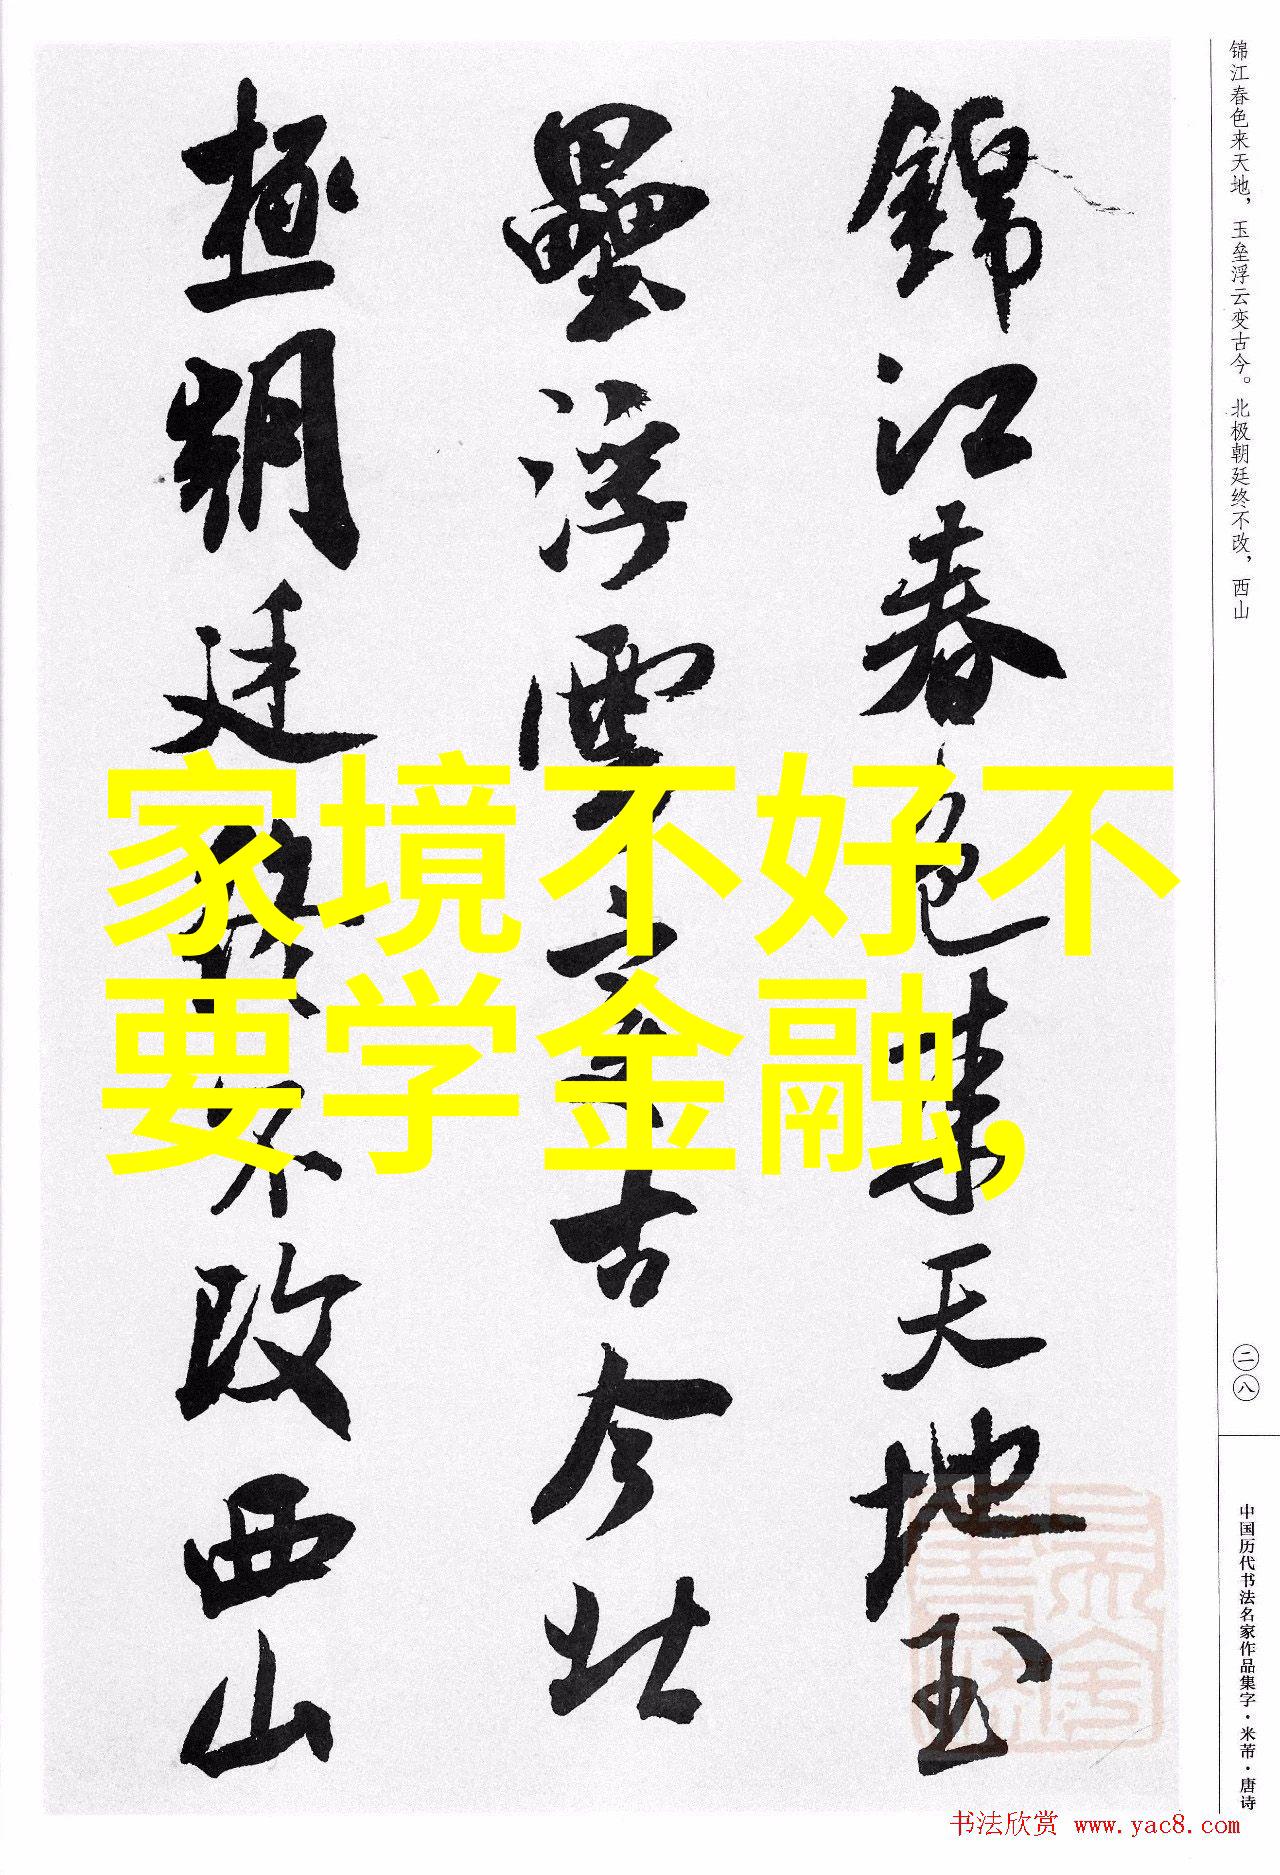 锦江春色来天地，玉垒浮云变古今。北极朝廷终不改，西山
錦江春色来天地玉
壘浮雲變古今北
極朝廷終不改西山
家境不好不
要学金融,
二八
中国历代书法名家作品集字·米芾·唐诗
书法欣赏 www.yac8.com